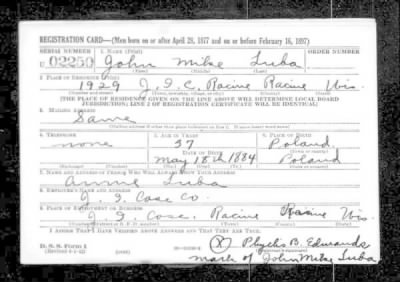 REGISTRATION CARD—(Men born on or after April 28, 1877 and on or before February 16, 1897)
SERIAL NUMBER 1. NAME (Print) ORDER NUMBER
U 02250 John Mike Luba
(First) (Middle) (Last)
2. PLACE OF RESIDENCE (Print)
1929 J. I. C. Racine Racine Wis.
(Number and street) (Town, township, village, or city) (County) (State)
[THE PLACE OF RESIDENCE GIVEN ON THE LINE ABOVE WILL DETERMINE LOCAL BOARD
JURISDICTION; LINE 2 OF REGISTRATION CERTIFICATE WILL BE IDENTICAL]
3. MAILING ADDRESS
Same
[Mailing address if other than place indicated on line 2. If same insert word same]
4. TELEPHONE 5. AGE IN YEARS 6. PLACE OF BIRTH
none 57 Poland
DATE OF BIRTH (Town or county)
May 18th 1884 Poland
(Exchange) (Number) (Mo.) (Day) (Yr.) (State or country)
7. NAME AND ADDRESS OF PERSON WHO WILL ALWAYS KNOW YOUR ADDRESS
Annie Luba
8. EMPLOYER'S NAME AND ADDRESS
J. I. Case Co.
9. PLACE OF EMPLOYMENT OR BUSINESS
J. I. Case. Racine Racine Wis.
I AFFIRM THAT I HAVE VERIFIED ABOVE ANSWERS AND THAT THEY ARE TRUE.
D. S. S. Form 1 (X) Phyllis B. Edmunds
(Revised 4-1-42) (over) mark of John Mike Luba